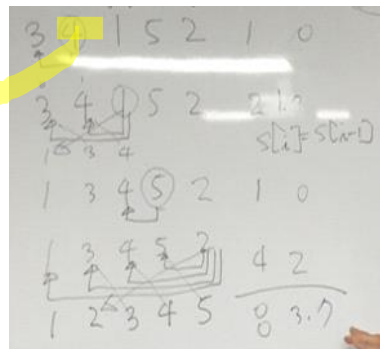 3 4 1 5 2 1 0
3 4 1 5 2 2
1 3 4 S[i]=S[i-1]
1 3 4 5 2 1 0
1 3 4 5 2 4 2
1 2 3 4 5 8 3.7